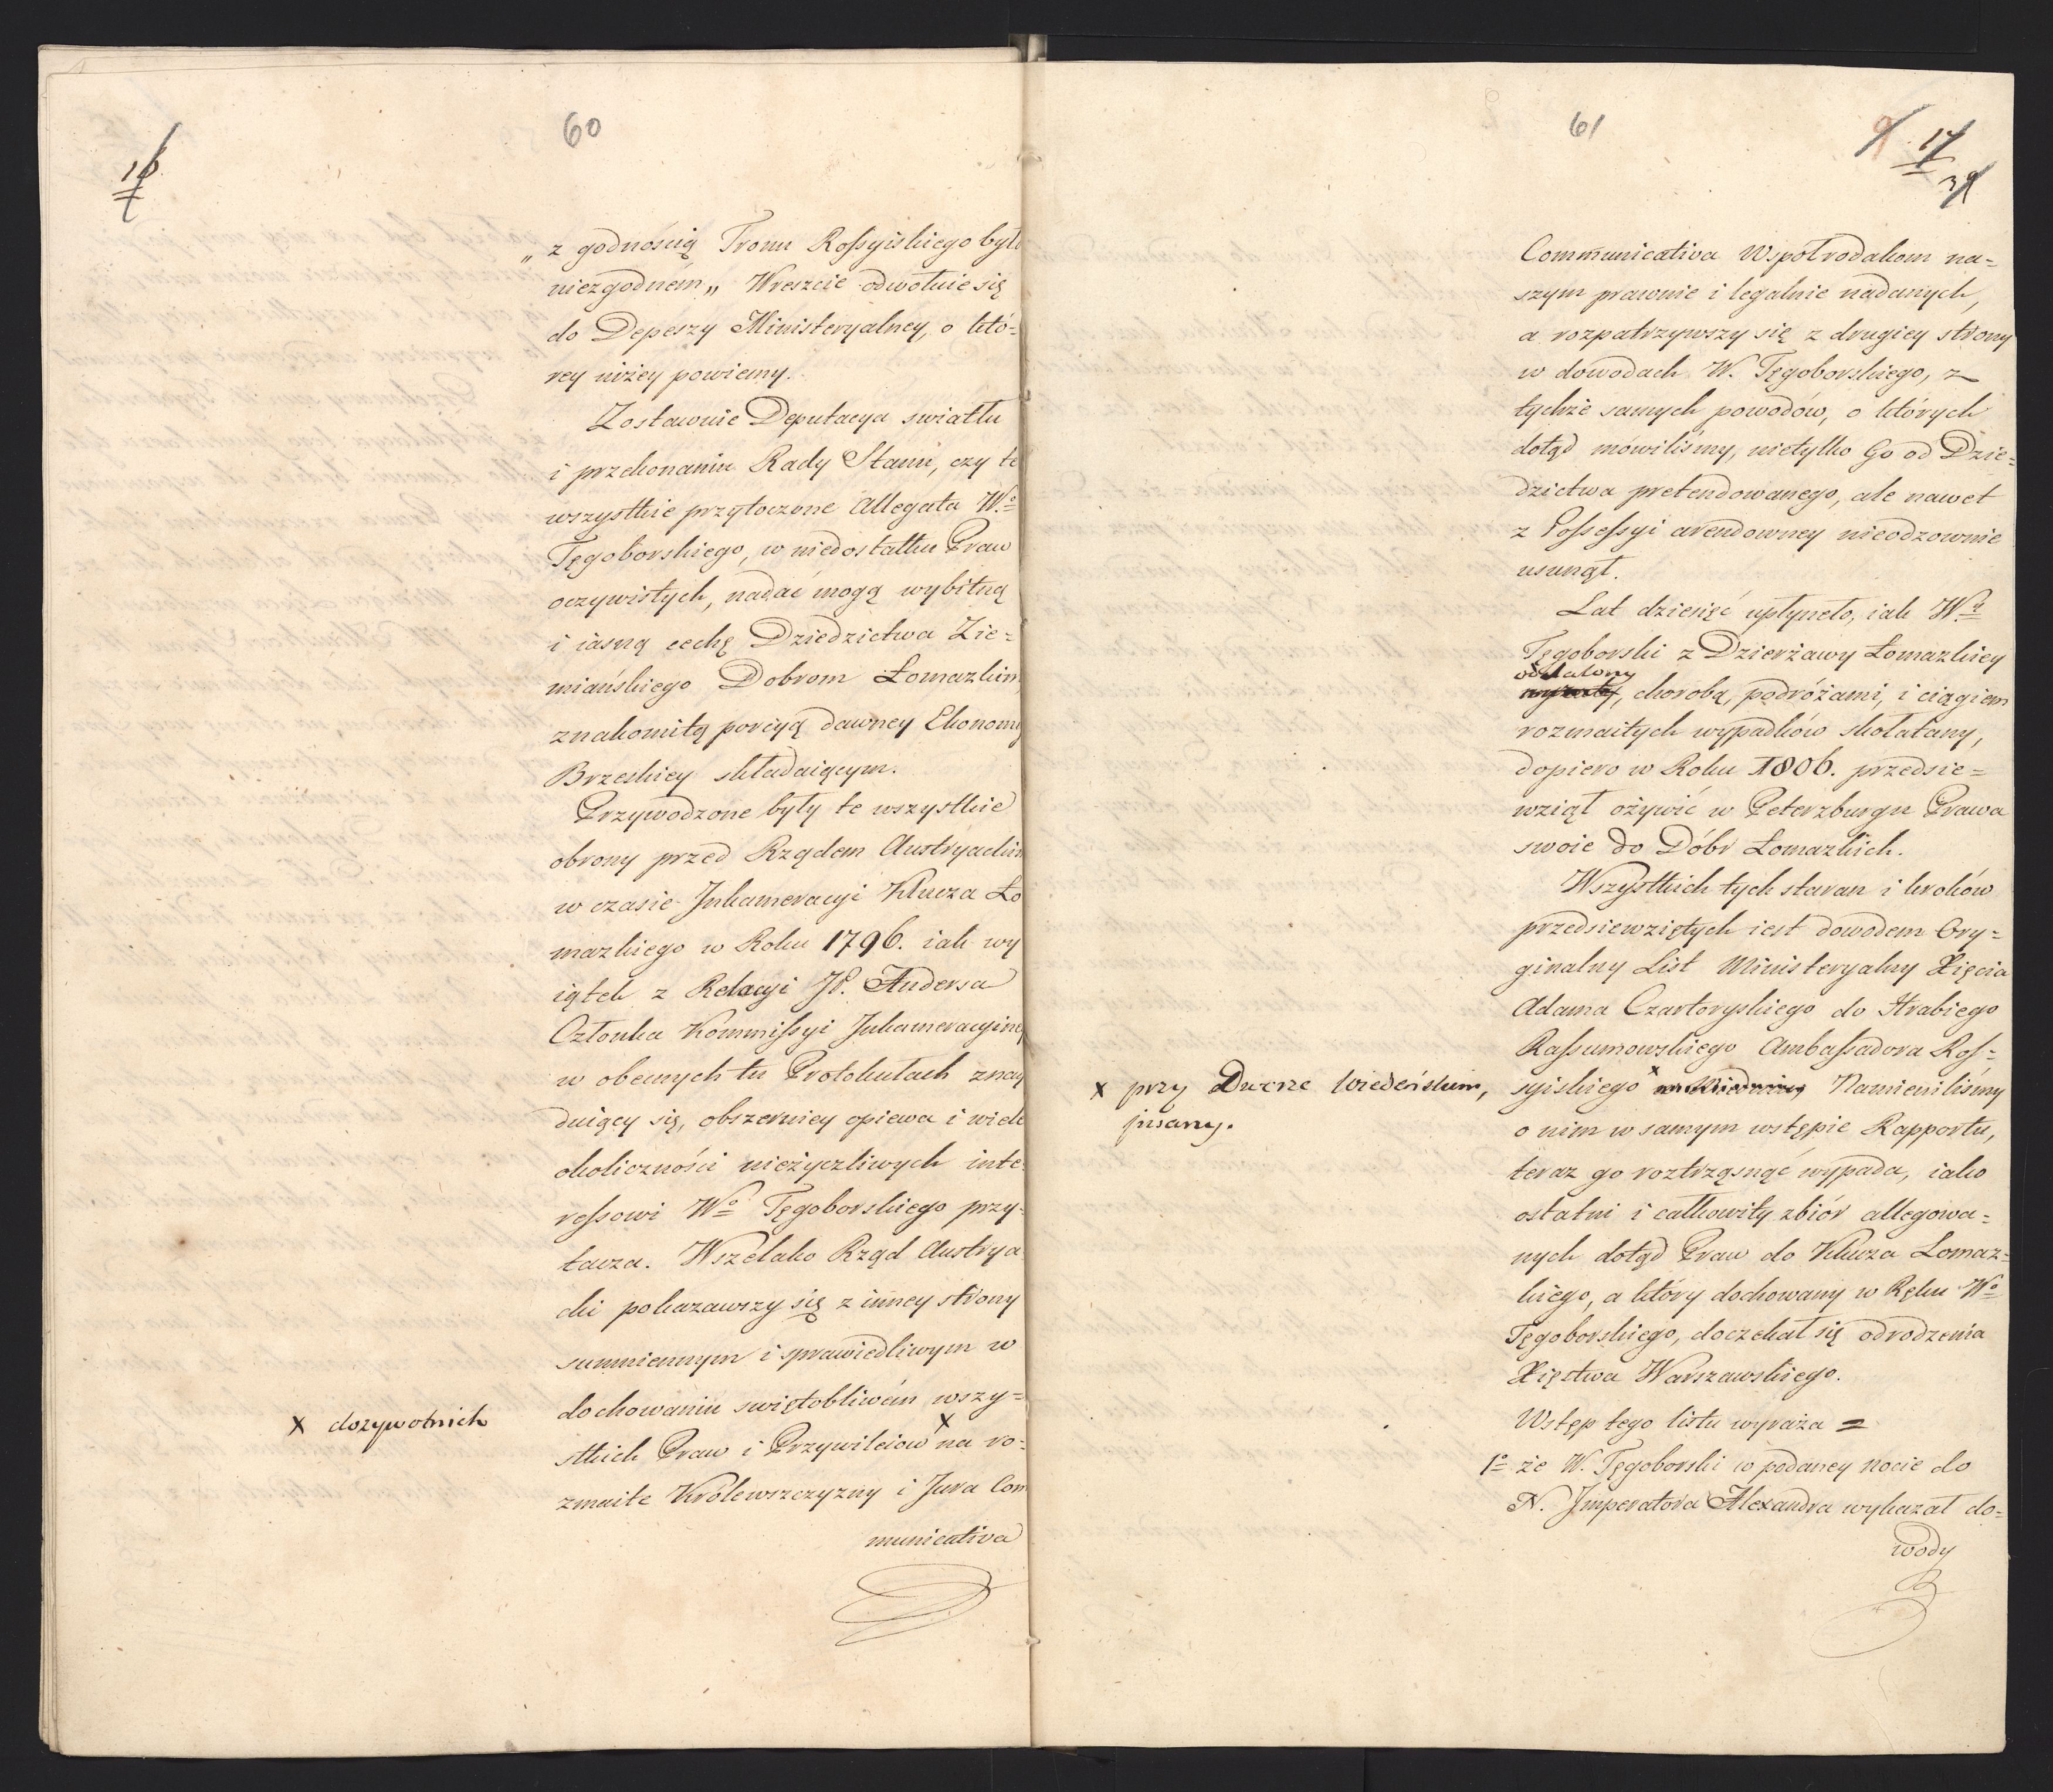 60
16
„ z godnością Tronu Rossyiskiego było
niezgodném„ Wreszcie odwołuie się
do Depeszy Ministeryalney, o któ=
rey niżey powiemy.
Zostawuie Deputacya swiatłu
i przekonaniu Rady Stanu, czy te
wszystkie przytoczone Allegata Wº
Tęgoborskiego, w niedostatku Praw
oczywistych, nadać mogą wybitną
i iasną cechę Dziedzictwa Zie=
miańskiego Dobrom Łomazkim
znakomitą porcyą dawney Ekonomy
Brzeskiey składaiącym.
Przywodzone były te wszystkie
obrony przed Rządem Austryackim
w czasie Inkameracyi Klucza Ło
mazkiego w Roku 1796. iak wy
iątek z Relacyi JP. Andersa
Członka Kommissyi Inkameracyiney
w obecnych tu Protokułach znay
duiący się, obszerniey opiewa i wiele
okoliczności nieżyczliwych inte
ressowi Wº Tęgoborskiego przy=
tacza. Wszelako Rząd Austrya
cki pokazawszy się z inney strony
summiennym i sprawiedliwym w
dochowaniu swiętobliwém wszy=
stkich Praw i Przywileiow x na ro=
x dozywotnich
zmaite Królewszczyzny i Jura Com
municativa
61
9 17
39
Communicativa Wspołrodakom na=
szym prawnie i legalnie nadanych,
a rozpatrzywszy się z drugiey strony
w dowodach W. Tęgoborskiego, z
tychże samych powodów, o których
dotąd mówiliśmy, nietylko Go od Dzie=
dzictwa pretendowanego, ale nawet
z Possessyi arendowney nieodzownie
usunął.
Lat dziesięć upłyneło, iak Wy
Tęgoborski z Dzierżawy Łomazkiey
oddalony
, chorobą, podróżami, i ciągiem
rozmaitych wypadków skołatany,
dopiero w Roku 1806. przedsie=
wziął ożywić w Peterzburgu Prawa
swoie do Dóbr Łomazkich.
Wszystkich tych staran i kroków
przedsiewziętych iest dowodem Ory=
ginalny List Ministeryalny Xięcia
Adama Czartoryskiego do Hrabiego
Rassumowskiego Ambassadora Ros=
x przy Dworze Wiedeńskim,
pisany.
syiskiego x w Wiedniu, Namieniliśmy
o nim w samym wstępie Rapportu,
teraz go roztrząsnąć wypada, iako
ostatni i całkowity zbiór allegowa=
nych dotąd Praw do Klucza Lomaz=
kiego, a który dochowany w Ręku Wº
Tęgoborskiego, doczekał się odrodzenia
Xięstwa Warszawskiego.
Wstęp tego listu wyraża =
1º że W. Tęgoborski w podaney nocie do
N. Imperatora Alexandra wykazał do=
wody